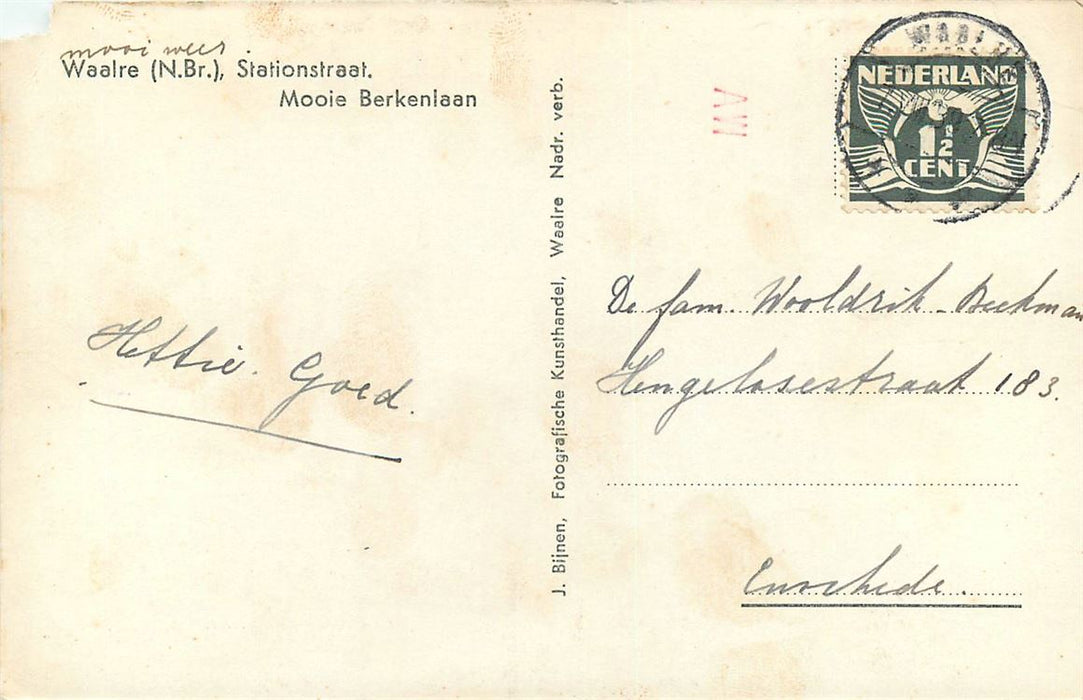 mooi weer.
Waalre (N.Br.), Stationstraat.
Mooie Berkenlaan
Hettie. Goed.
J. Bijnen, Fotografische Kunsthandel, Waalre Nadr. verb.
AW
WAALRE
NEDERLAND
1½
CENT
De fam. Wooldrik-Beekman
Hengelosestraat 183.
Enschede.